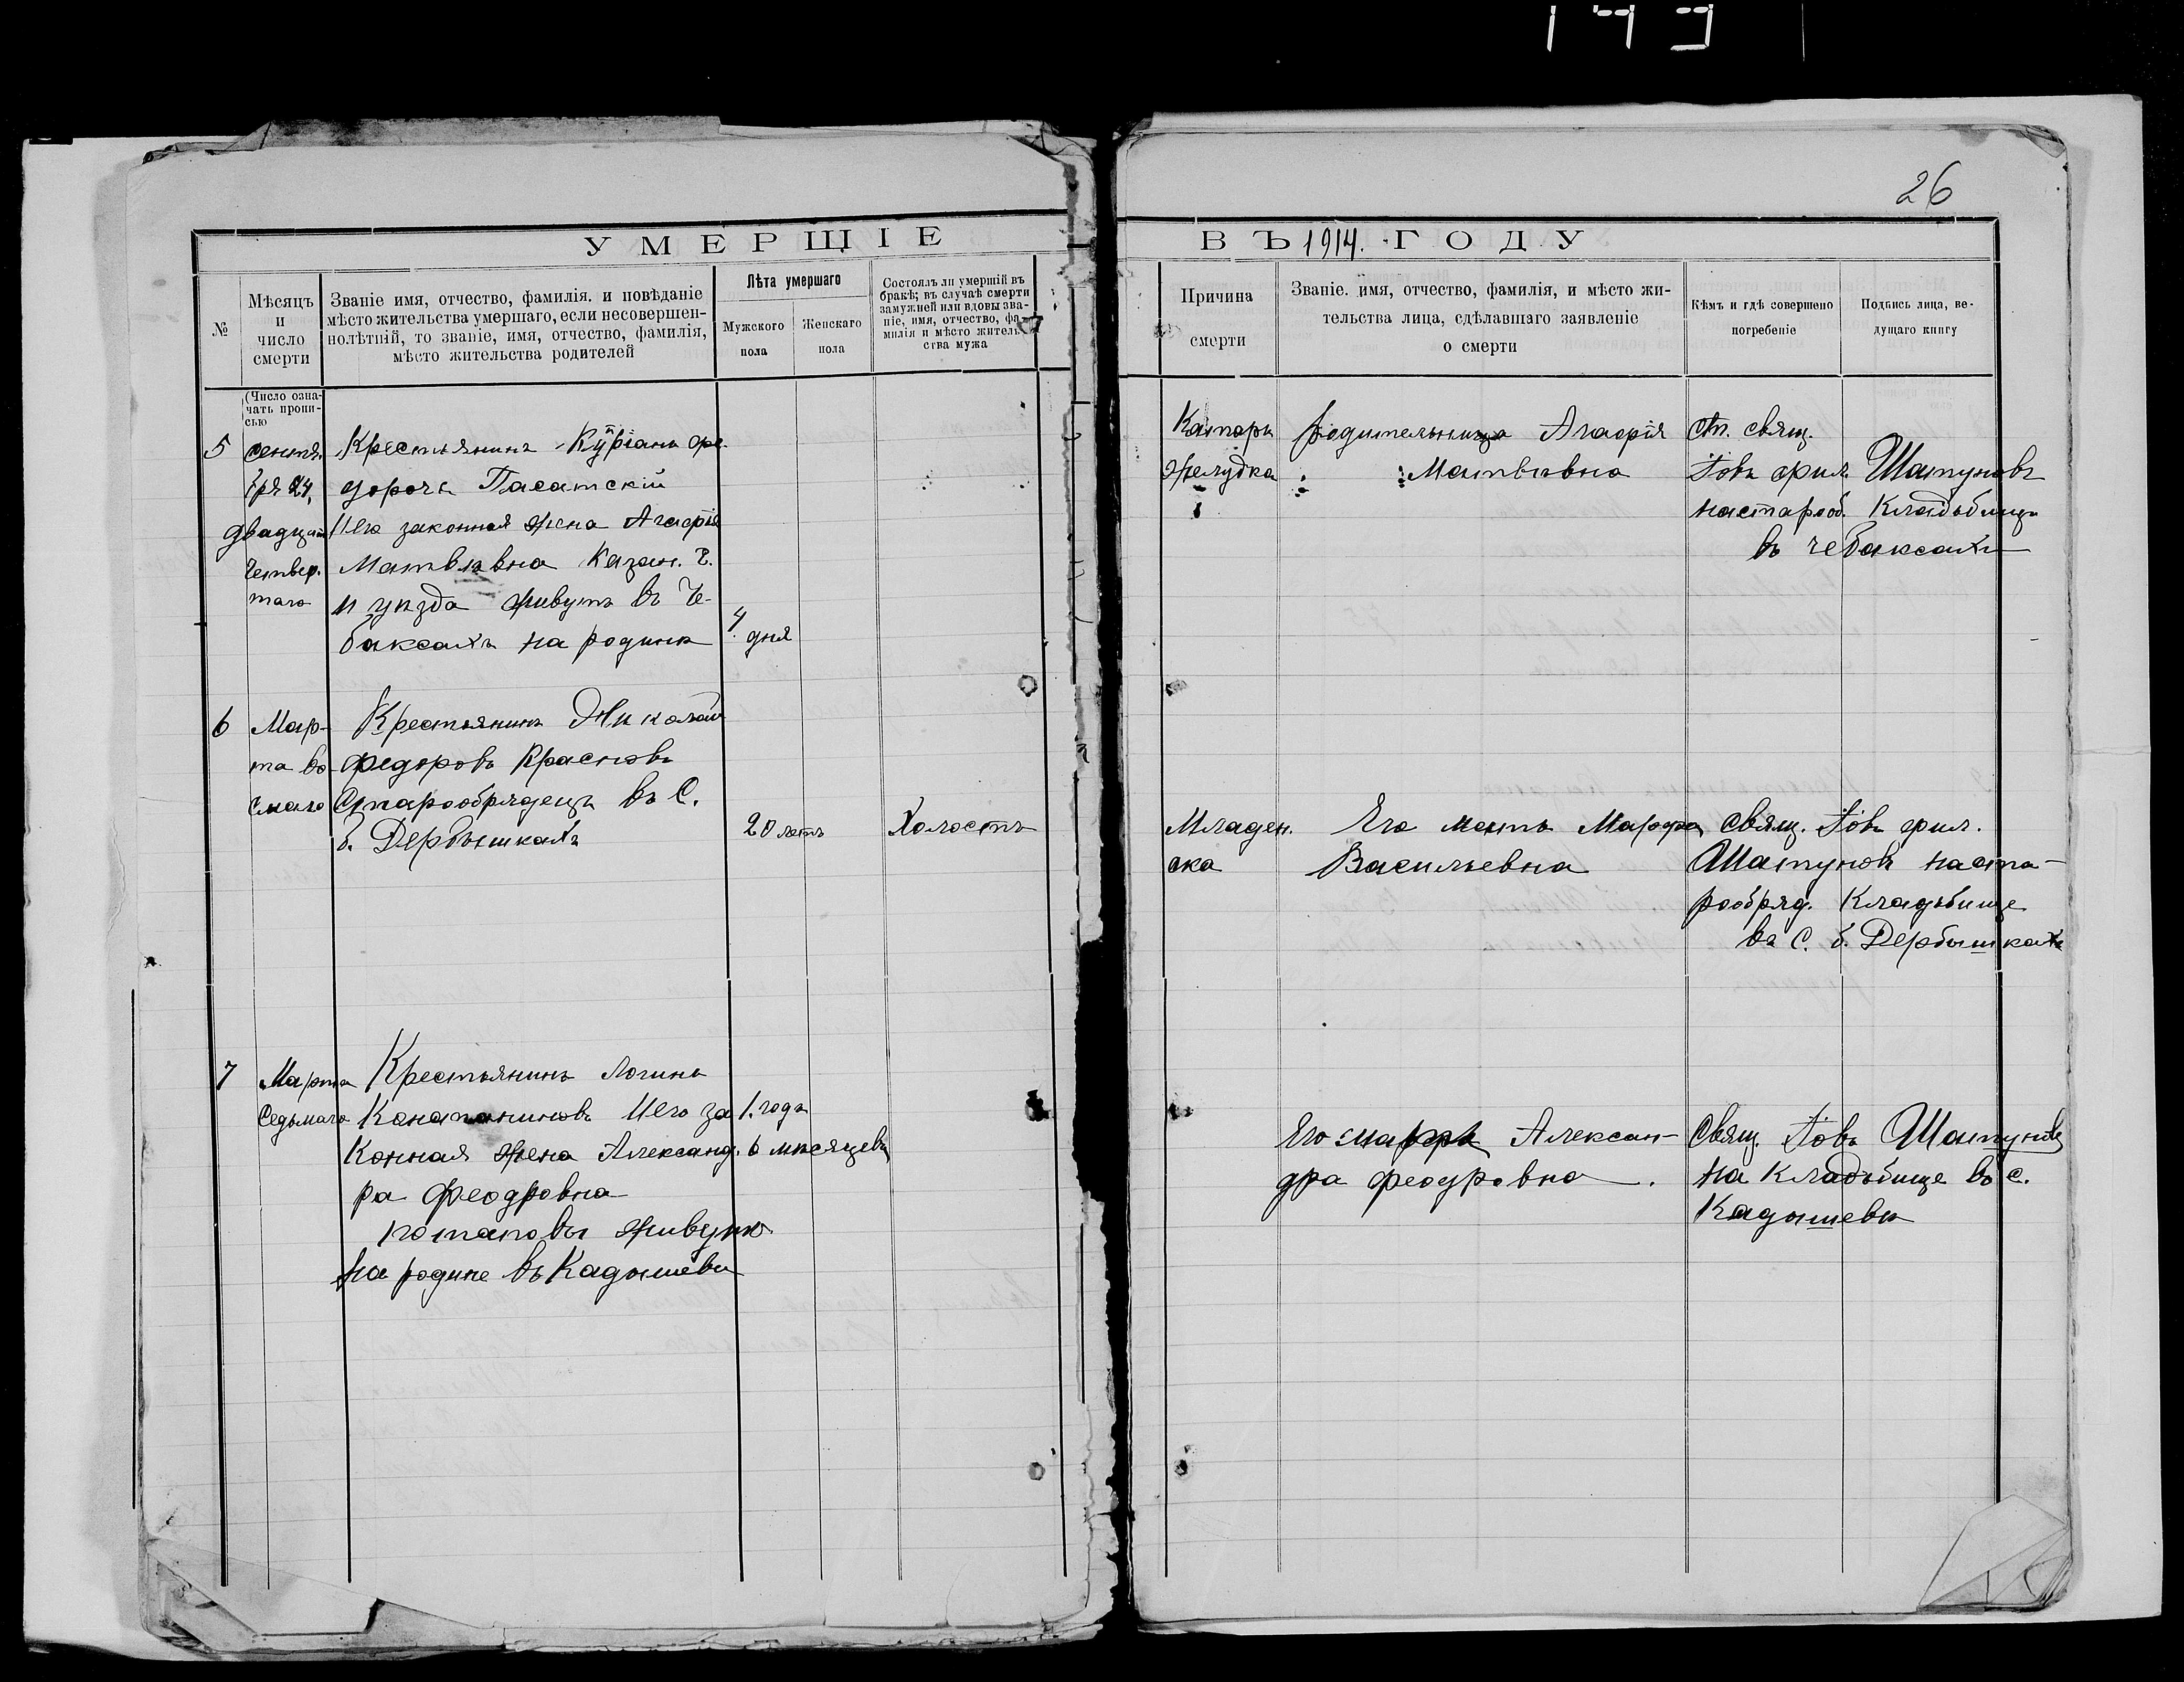 26
УМЕРШІЕ
ВЪ 1914. ГОДУ
№
Мѣсяцъ и число смерти
Званіе имя, отчество, фамилія. и повѣданіе
мѣсто жительства умершаго, если несовершен-
нолѣтній, то званіе, имя, отчество, фамилія,
мѣсто жительства родителей
Лѣта умершаго
Мужского пола
Женскаго пола
Состоялъ ли умершій въ
бракѣ; въ случаѣ смерти
замужней или вдовы зва-
ніе, имя, отчество, фа-
милія и мѣсто житель-
ства мужа
Причина
смерти
Званіе. имя, отчество, фамилія, и мѣсто жи-
тельства лица, сдѣлавшаго заявленіе
о смерти
Кѣмъ и гдѣ совершено
погребеніе
Подпись лица, ве-
дущаго книгу
(Число озна-
чать пропи-
сью
5
сентя.
бря 24,
двадцат
четвер.
таго
Крестьянинъ Кѵріанъ фе.
дорочъ Пасатскій
Иего законная жена Агафія
Матвѣвна Казан. г.
и уѣзда живутъ въ Че-
баксахъ на родинѣ
4. дня
Катаръ
желудка
родительница Агафія
Матвѣвна
ст. свящ.
Іовъ фил. Шатуновъ
на старооб. Кладьбищѣ
въ чебаксахъ
6
Мар-
та во-
смаго
Крестьянинъ Николай
Федоровъ Красновъ
Старообрядецъ въ С.
б. Дербышкахъ
20 летъ
Холостъ
Младен.
ска
Его мать Марфа
Васильевна
Свящ. Іовъ фил.
Шатуновъ на ста-
рообряд. Кладьбище
въ С. б. Дербышкахъ
7
Марта
Седьмаго
Крестьянинъ Логинъ
Иего за
конная жена Александ.
ра Феодровна
потаповы живутъ
на родине въ Кадышеви
1. годъ
6 мѣсяцевъ
Его Алексан-
дра феодровна.
Свящ. Іовъ Шатуновъ
на Кладьбище въ с.
Кадышевѣ